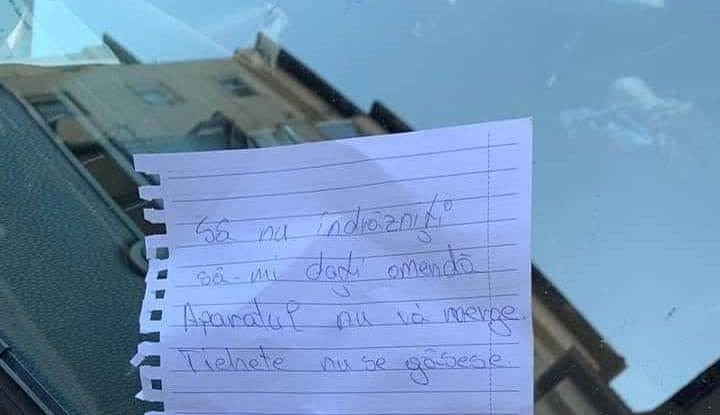 Să nu îndrăzniți
să-mi dați omendă
Aparatul nu vă merge.
Tichete nu se găsesc.